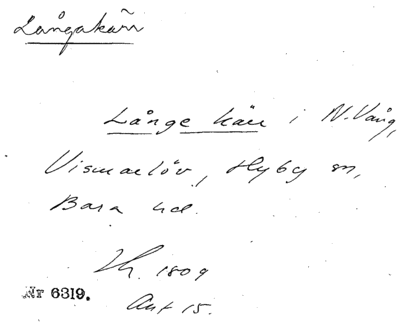 Långakärr
Långe kärr i N. Vång,
Vismarlöv, Hyby sn,
Bara hd.
1809
Nr 6319.
Akt 15.